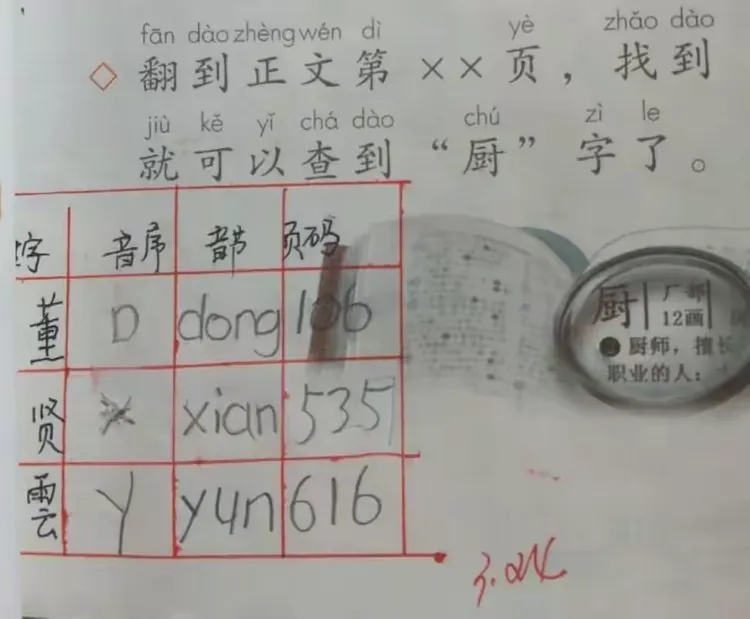 fān dào zhèng wén dì yè zhǎo dào
翻到正文第××页，找到
jiù kě yǐ chá dào chú zì le
就可以查到“厨”字了。
字 音序 音节 页码
董 D dong 106
贤 X xian 535
雲 Y yun 616
厨 厂部
12画
厨师，擅长
职业的人：
3.24